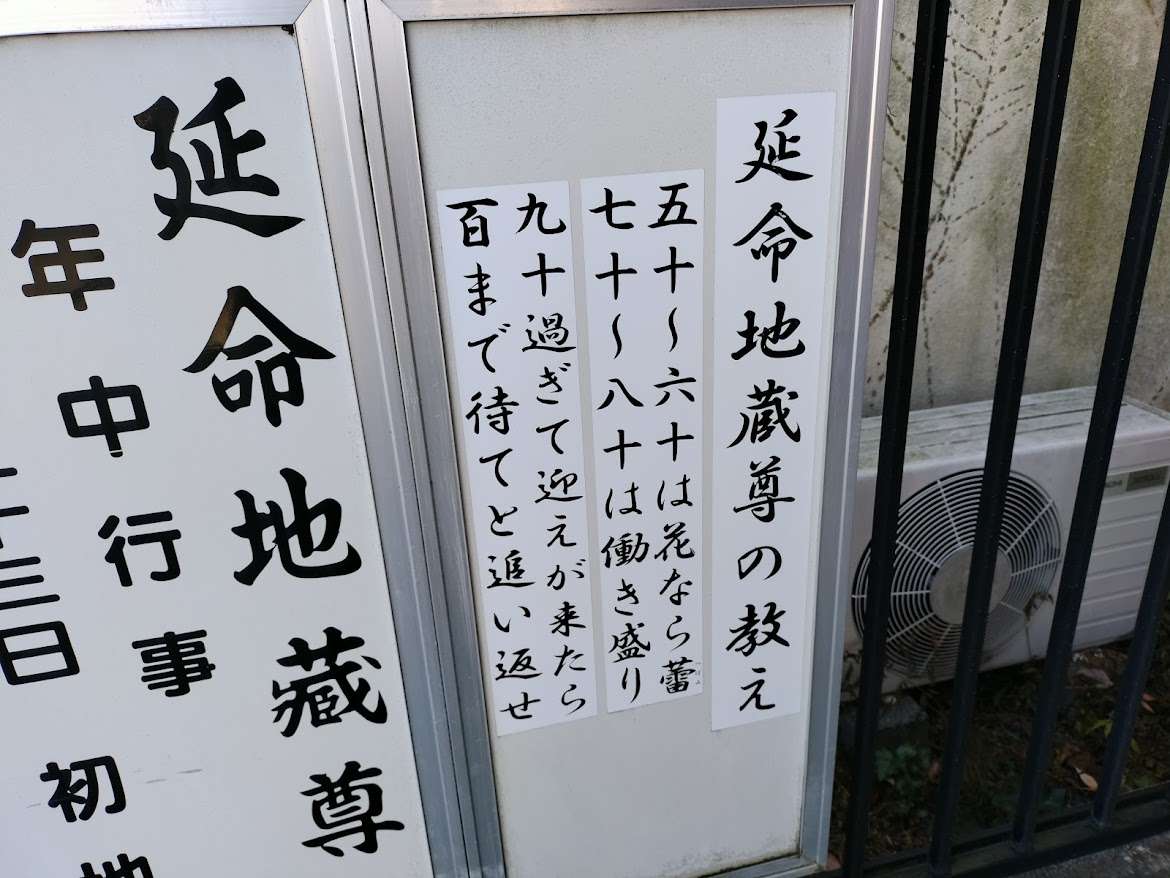 延命地蔵尊の教え
五十〜六十は花なら蕾
七十〜八十は働き盛り
九十過ぎて迎えが来たら
百まで待てと追い返せ
延命地藏尊
年中行事
初地
三日